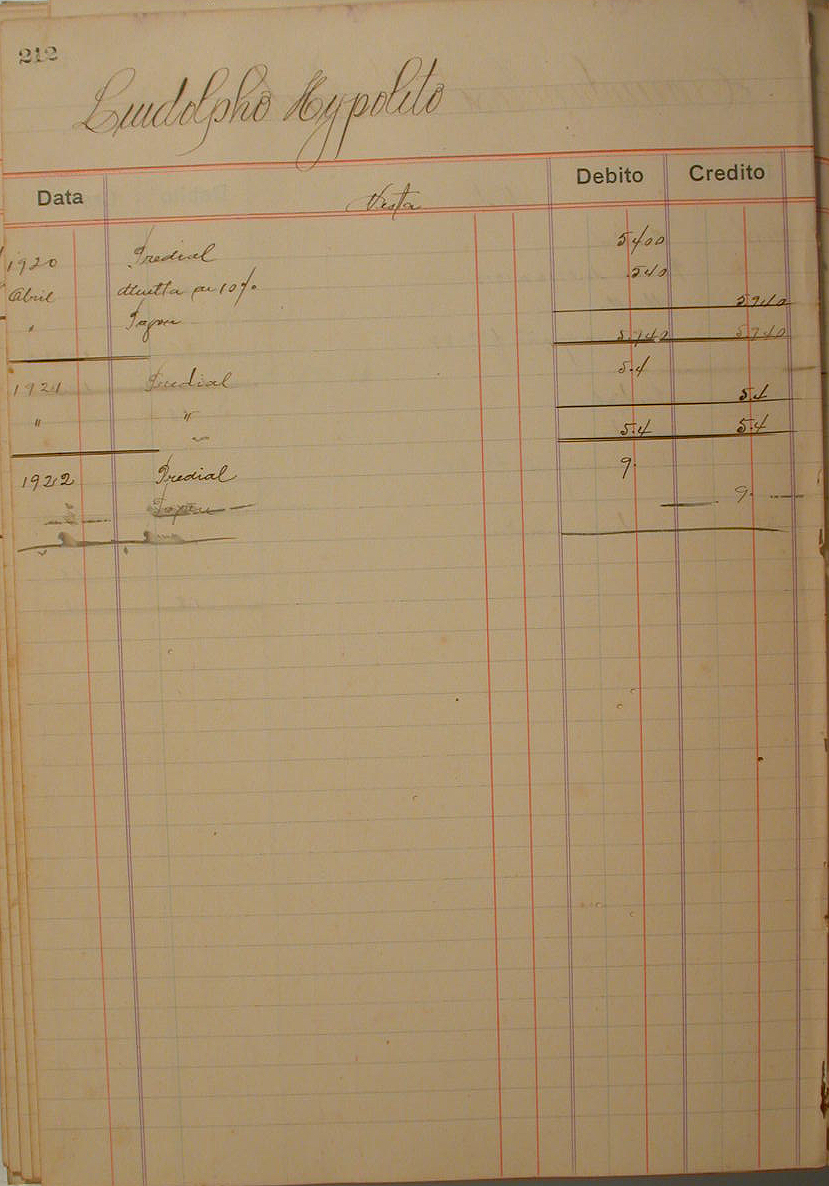 212
Lindolpho Hypolito
Data Debito Credito
1920 Predial 5400
Abril Multa de 10% 540
" Pagou 5940
5940 5940
1921 Predial 5.4
" " 5.4
5.4 5.4
1922 Predial 9.
Pagou 9.